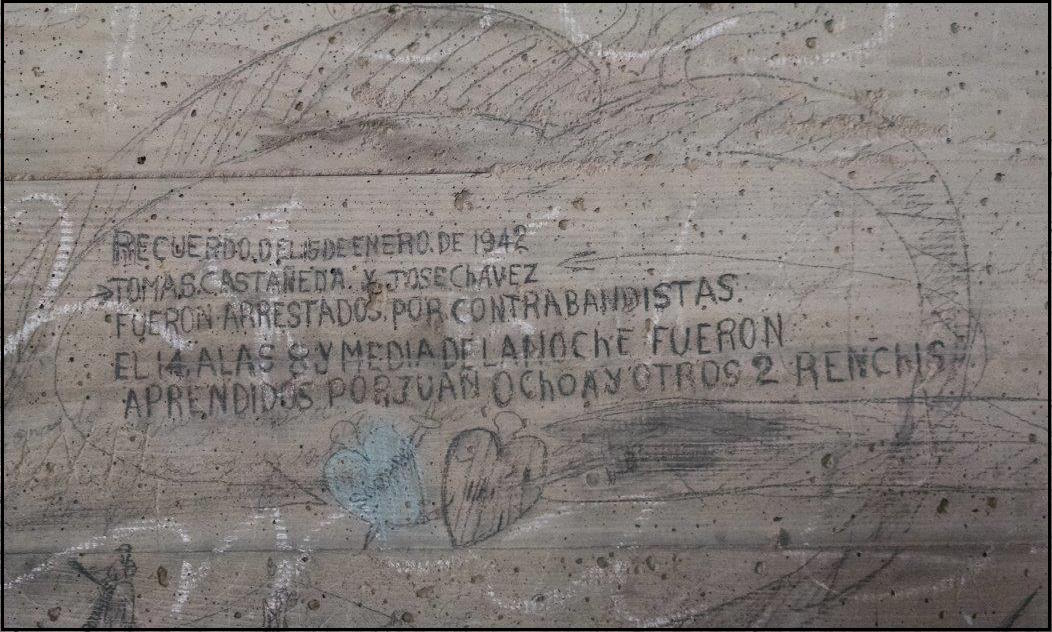 RECUERDO.DEL.15 DE ENERO.DE 1942
TOMAS.CASTAÑEDA. Y JOSE ChAVEZ
FUERON ARRESTADOS. POR CONTRABANDISTAS.
EL 14. ALAS 8 Y MEDIA DE LA NOChE FUERON
APRENDIDOS POR JUAN OChOA Y OTROS 2 RENChIS